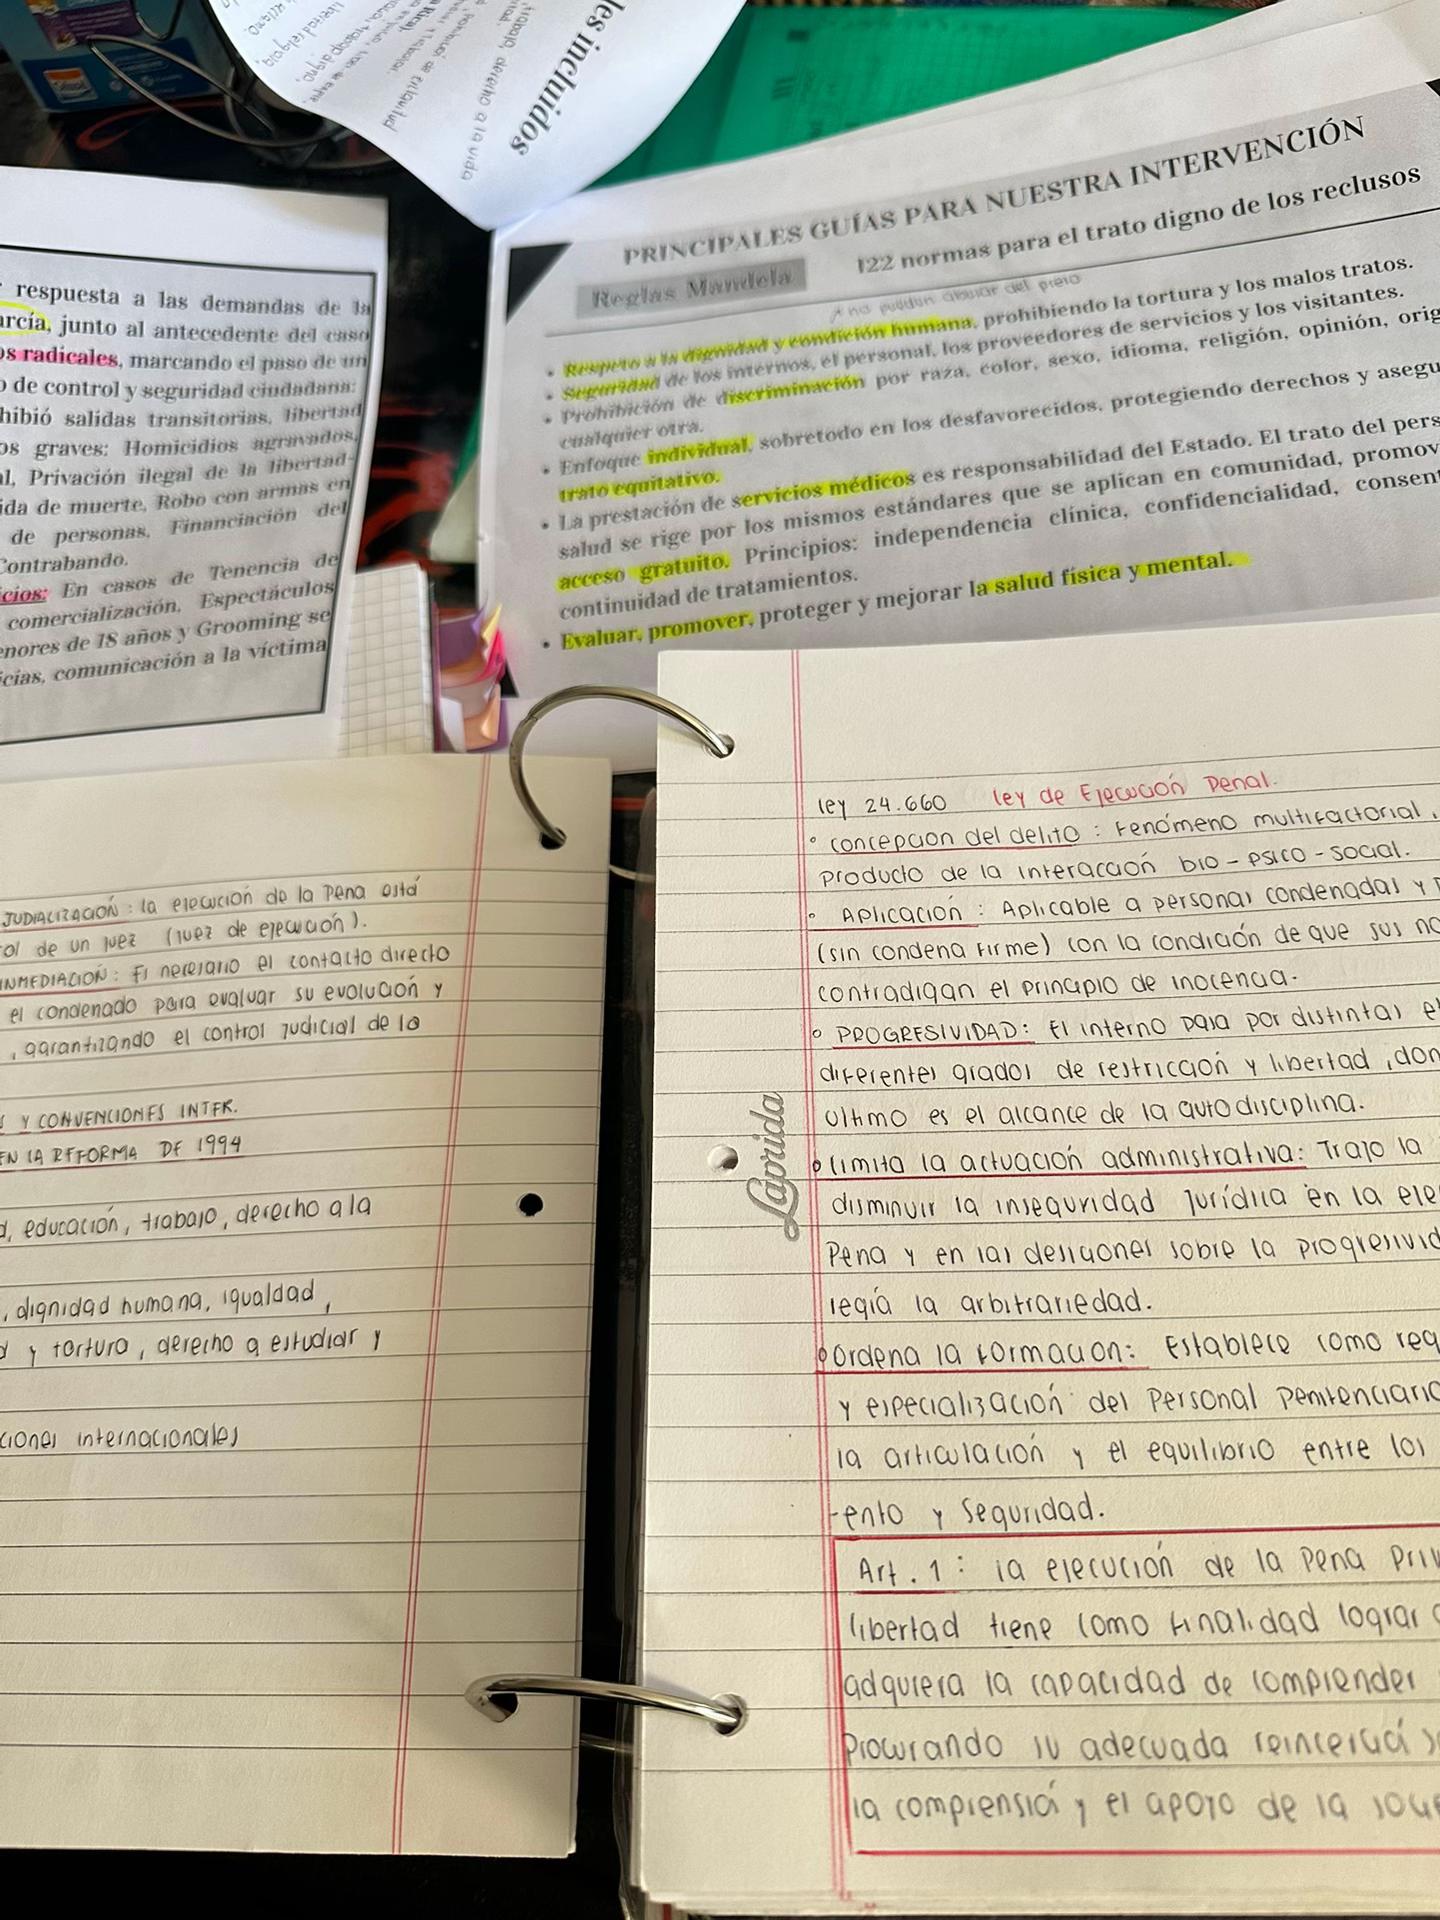 les incluidos
trabajo, derecho a la vida
PRINCIPALES GUÍAS PARA NUESTRA INTERVENCIÓN
Reglas Mandela
122 normas para el trato digno de los reclusos
no pueden abusar del preso
• Respeto a la dignidad y condición humana, prohibiendo la tortura y los malos tratos.
• Seguridad de los internos, el personal, los proveedores de servicios y los visitantes.
• Prohibición de discriminación por raza, color, sexo, idioma, religión, opinión, orig
cualquier otra.
• Enfoque individual, sobretodo en los desfavorecidos, protegiendo derechos y asegu
trato equitativo.
• La prestación de servicios médicos es responsabilidad del Estado. El trato del pers
salud se rige por los mismos estándares que se aplican en comunidad, promov
acceso gratuito. Principios: independencia clínica, confidencialidad, consent
continuidad de tratamientos.
• Evaluar, promover, proteger y mejorar la salud física y mental.
respuesta a las demandas de la
arcía, junto al antecedente del caso
os radicales, marcando el paso de un
o de control y seguridad ciudadana:
hibió salidas transitorias, libertad
os graves: Homicidios agravados,
al, Privación ilegal de la libertad-
ida de muerte, Robo con armas en
de personas, Financiación del
Contrabando.
cios: En casos de Tenencia de
comercialización, Espectáculos
enores de 18 años y Grooming se
icias, comunicación a la víctima
JUDIALIZACIÓN: la ejecución de la pena está
rol de un juez (juez de ejecución).
INMEDIACIÓN: Es necesario el contacto directo
el condenado para evaluar su evolución y
, garantizando el control judicial de la
S Y CONVENCIONES INTER.
EN LA REFORMA DE 1994
d, educación, trabajo, derecho a la
, dignidad humana, igualdad,
d y tortura, derecho a estudiar y
ciones internacionales
Laprida
ley 24.660 ley de Ejecución Penal.
° concepcion del delito: Fenómeno multifactorial,
producto de la interacción bio-psico-social.
° Aplicación: Aplicable a personas condenadas y p
(sin condena firme) con la condición de que sus no
contradigan el principio de inocencia.
° PROGRESIVIDAD: El interno pasa por distintas et
diferentes grados de restricción y libertad, don
ultimo es el alcance de la autodisciplina.
° limita la actuación administrativa: Trajo la
disminuir la inseguridad jurídica en la eje
pena y en las desiciones sobre la progresivid
regía la arbitrariedad.
° Ordena la formacion: Establece como req
y especialización del personal penitenciario
la articulación y el equilibrio entre los
-ento y seguridad.
Art. 1: la ejecución de la pena priv
libertad tiene como finalidad lograr q
adquiera la capacidad de comprender
procurando su adecuada reinserció so
la comprensió y el apoyo de la socie